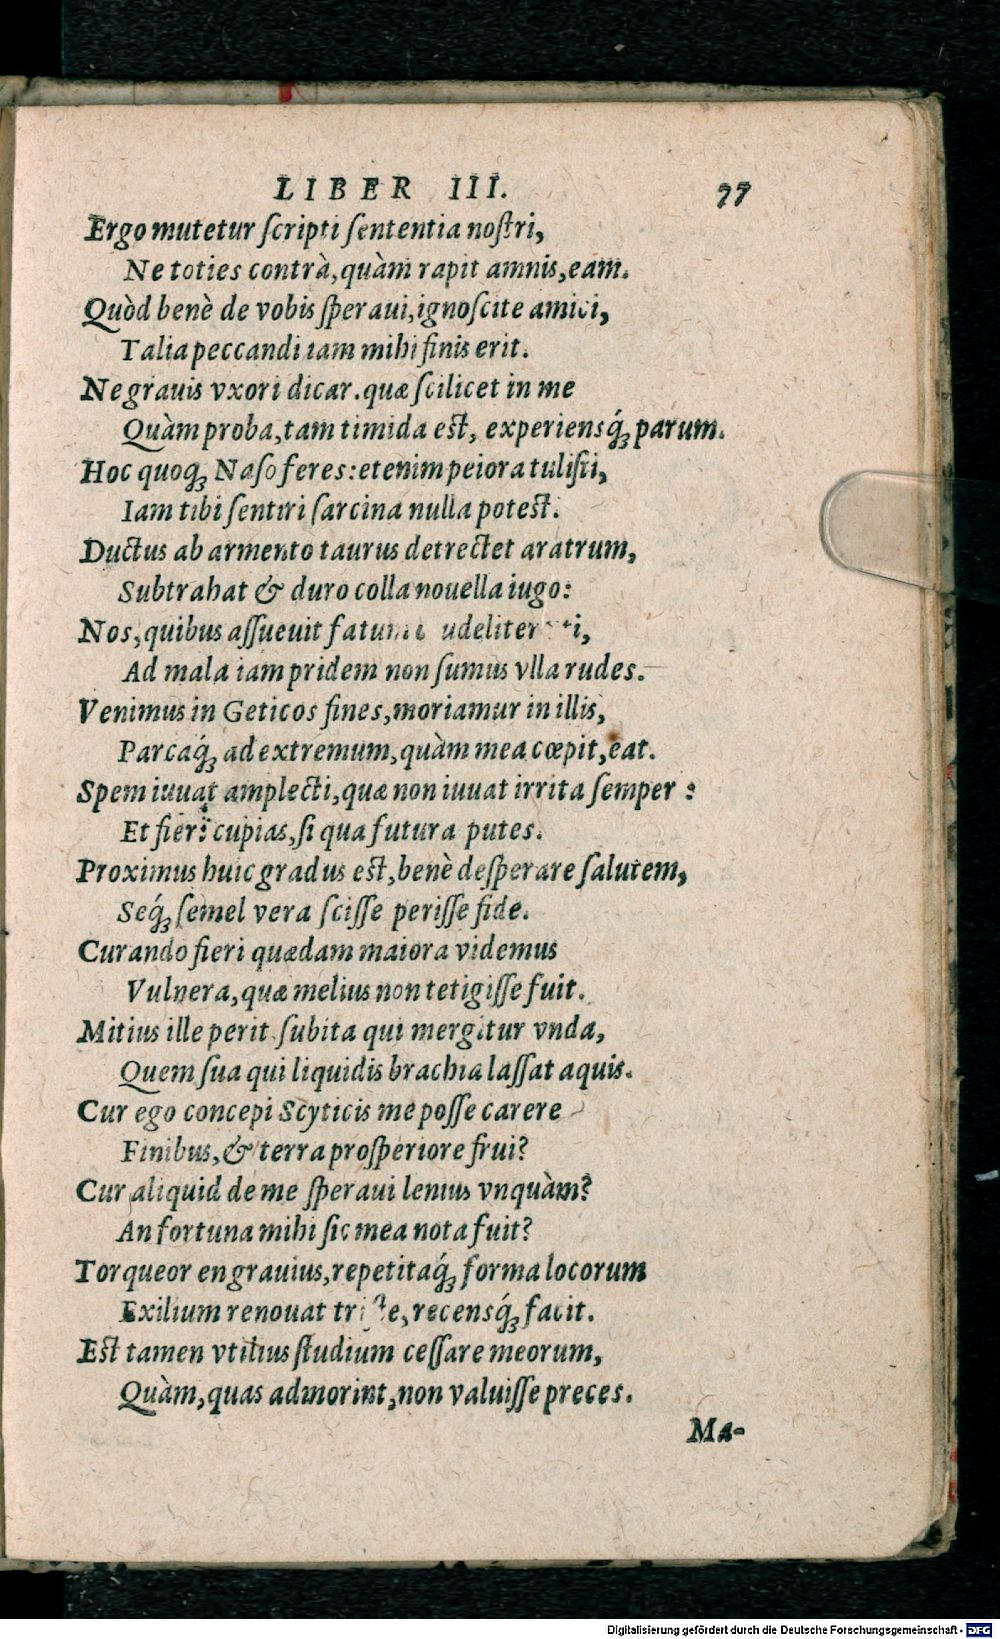 LIBER III. 77
Ergo mutetur ſcripti ſententia noſtri,
Ne toties contrà, quàm rapit amnis, eam.
Quòd benè de vobis ſperaui, ignoſcite amici,
Talia peccandi iam mihi finis erit.
Ne grauis vxori dicar. quæ ſcilicet in me
Quàm proba, tam timida eſt, experiensq́; parum.
Hoc quoq; Naſo feres: etenim peiora tuliſti,
Iam tibi ſentiri ſarcina nulla poteſt.
Ductus ab armento taurus detrectet aratrum,
Subtrahat & duro colla nouella iugo:
Nos, quibus aſſueuit
Ad mala iampridem non ſumus vlla rudes.
Venimus in Geticos fines, moriamur in illis,
Parcaq́; ad extremum, quàm mea cœpit, eat.
Spem iuuat amplecti, quæ non iuuat irrita ſemper:
Et fieri cupias, ſi qua futura putes.
Proximus huic gradus eſt, benè deſperare ſalutem,
Seq́; ſemel vera ſciſſe periſſe fide.
Curando fieri quædam maiora videmus
Vulnera, quæ melius non tetigiſſe fuit.
Mitius ille perit ſubita qui mergitur vnda,
Quem ſua qui liquidis brachia laſſat aquis.
Cur ego concepi Scyticis me poſſe carere
Finibus, & terra proſperiore frui?
Cur aliquid de me ſperaui lenius vnquàm?
An fortuna mihi ſic mea nota fuit?
Torqueor en grauius, repetitaq́; forma locorum
Exilium renouat triſte, recensq́; facit.
Eſt tamen vtilius ſtudium ceſſare meorum,
Quàm, quas admorint, non valuiſſe preces.
Ma-
Digitalisierung gefördert durch die Deutsche Forschungsgemeinschaft - DFG